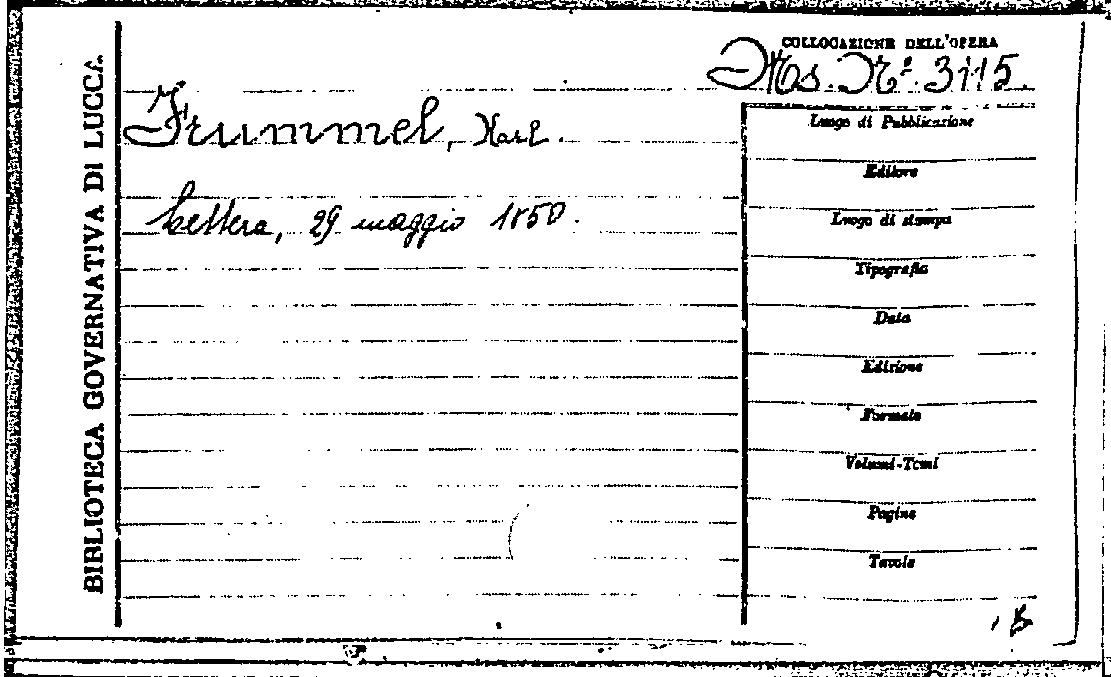 BIBLIOTECA GOVERNATIVA DI LUCCA
COLLOCAZIONE DELL'OPERA
Ms. Nº. 3115.
Frummel, Karl.
Lettera, 29 maggio 1850.
Luogo di Pubblicazione
Editore
Luogo di stampa
Tipografia
Data
Edizione
Formato
Volumi-Tomi
Pagine
Tavole